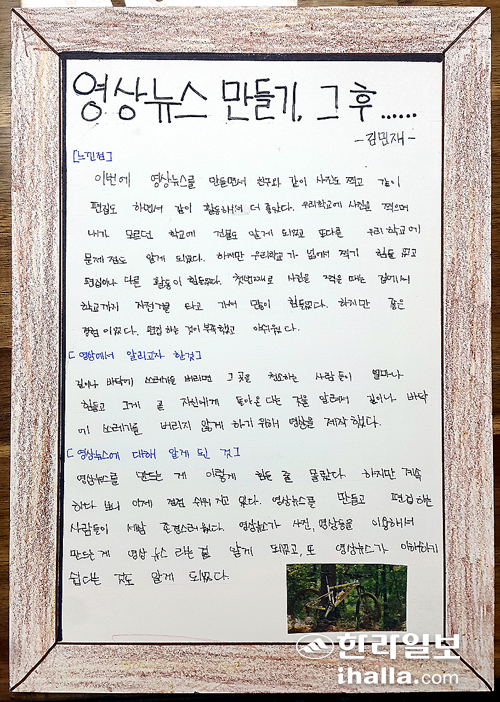 영상뉴스 만들기, 그 후......
-김민재-
[느낀점]
이번에 영상뉴스를 만들면서 친구와 같이 사진도 찍고 같이
편집도 하면서 같이 활동해서 더 좋았다. 우리학교에 사진을 찍으며
내가 모르던 학교에 건물도 알게 되었고 또다른 우리 학교에
문제점도 알게 되었다. 하지만 우리학교가 넓어서 찍기 힘들 었고
편집이나 다른 활동이 힘들었다. 첫번째로 사진을 찍을 때는 집에서
학교까지 자전거를 타고 가서 많이 힘들었다. 하지만 좋은
경험 이었다. 편집 하는 것이 부족했고 아쉬웠다.
[영상에서 알리고자 한것]
길이나 바닥에 쓰레기를 버리면 그 곳을 청소하는 사람들이 얼마나
힘들고 그게 곧 자신에게 돌아온다는 것을 알려서 길이나 바닥
에 쓰레기를 버리지 않게 하기 위해 영상을 제작 했다.
[영상뉴스에 대해 알게 된 것]
영상뉴스를 만드는 게 이렇게 힘든 줄 몰랐다. 하지만 계속
하다 보니 이제 점점 쉬워 지고 있다. 영상뉴스를 만들고 편집하는
사람들이 세삼 존경스러웠다. 영상뉴스가 사진, 영상등을 이용해서
만드는 게 영상 뉴스 라는걸 알게 되었고, 또 영상뉴스가 이해하기
쉽다는 것도 알게 되었다.
한라일보
ihalla.com